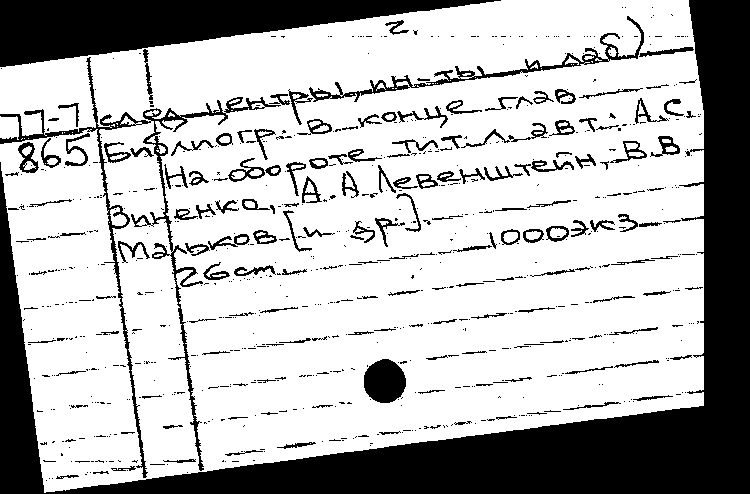 2.
77-7 след центры, ин-ты и лаб)
865 Библиогр. в конце глав.
На обороте тит. л. авт.: А.С.
Зиненко, А.А. Левенштейн, В.В.
Мальков [и др.].
26 cm. 1000экз